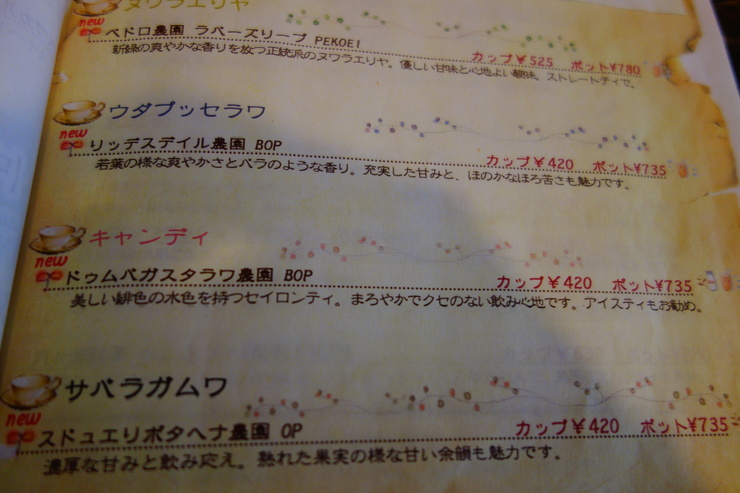 ヌワラエリヤ
new
ペドロ農園 ラバーズリープ PEKOE1
カップ¥525 ポット¥780
新緑の爽やかな香りを放つ正統派のヌワラエリヤ。優しい甘味と心地よい酸味。ストレートティで。
ウダプッセラワ
new
リッデスデイル農園 BOP
カップ¥420 ポット¥735
若葉の様な爽やかさとバラのような香り。充実した甘みと、ほのかなほろ苦さも魅力です。
キャンディ
new
ドゥムバガスタラワ農園 BOP
カップ¥420 ポット¥735
美しい緋色の水色を持つセイロンティ。まろやかでクセのない飲み心地です。アイスティもお勧め。
サバラガムワ
new
スドュエリポタヘナ農園 OP
カップ¥420 ポット¥735
濃厚な甘みと飲み応え。熟れた果実の様な甘い余韻も魅力です。